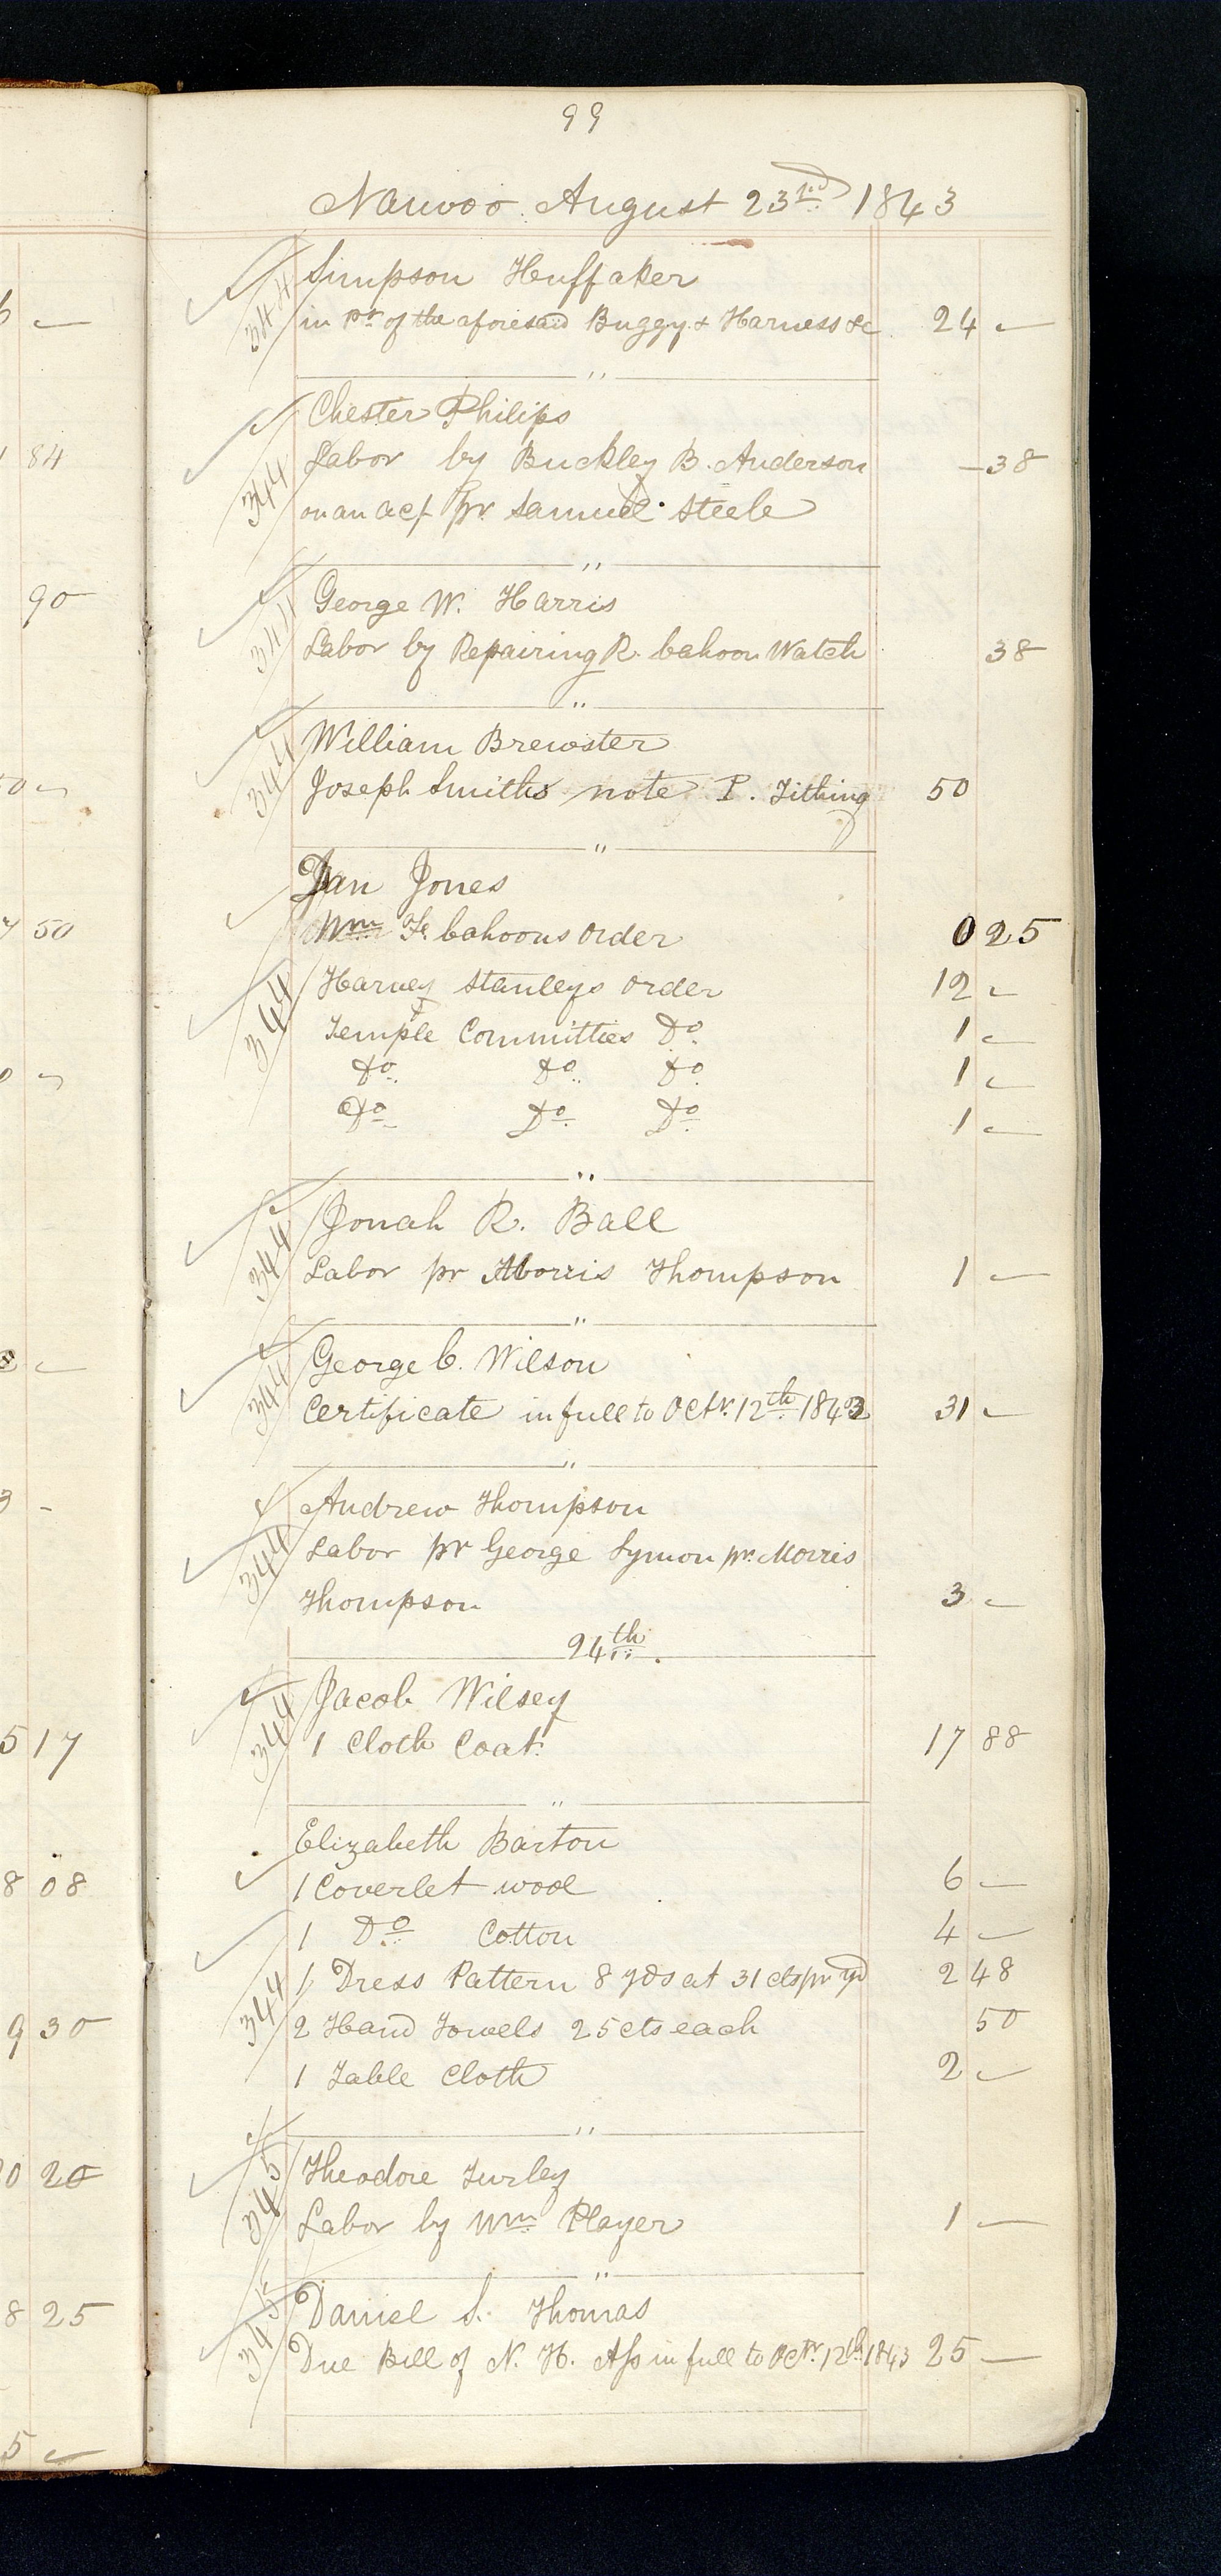 99
Nauvoo August 23rd 1843
344 Simpson Huffaker
in pt of the aforesaid Buggy & Harness &c 24 —
"
344 Chester Philips
Labor by Buckley B. Anderson — 38
on an act pr Samuel Steele
"
344 George W. Harris
Labor by Repairing R. Cahoon Watch 38
"
344 William Brewster
Joseph Smiths note P. Tithing 50
"
Dan Jones
Wm F. Cahoons order 0 25
344 Harvey Stanleys order 12 —
Temple Committies Do 1 —
Do Do Do 1 —
Do Do Do 1 —
"
344 Jonah R. Ball
Labor pr Morris Thompson 1 —
"
344 George C. Wilson
Certificate in full to Octr. 12th 1843 31 —
"
344 Andrew Thompson
Labor pr George Symon pr. Morris
Thompson 3 —
24th.
344 Jacob Wilsey
1 Cloth Coat 17 88
"
Elizabeth Barton
1 Coverlet wool 6 —
1 Do Cotton 4 —
1 Dress Pattern 8 yds at 31 cts pr yd 2 48
344 2 Hand Towels 25 cts each 50
1 Table Cloth 2 —
"
345 Theodore Turley
Labor by Wm Player 1 —
"
345 Daniel S. Thomas
Due Bill of N. H. Ass in full to Octr. 12th 1843 25 —
84
90
50
5 17
8 08
9 30
0 20
8 25
5 —